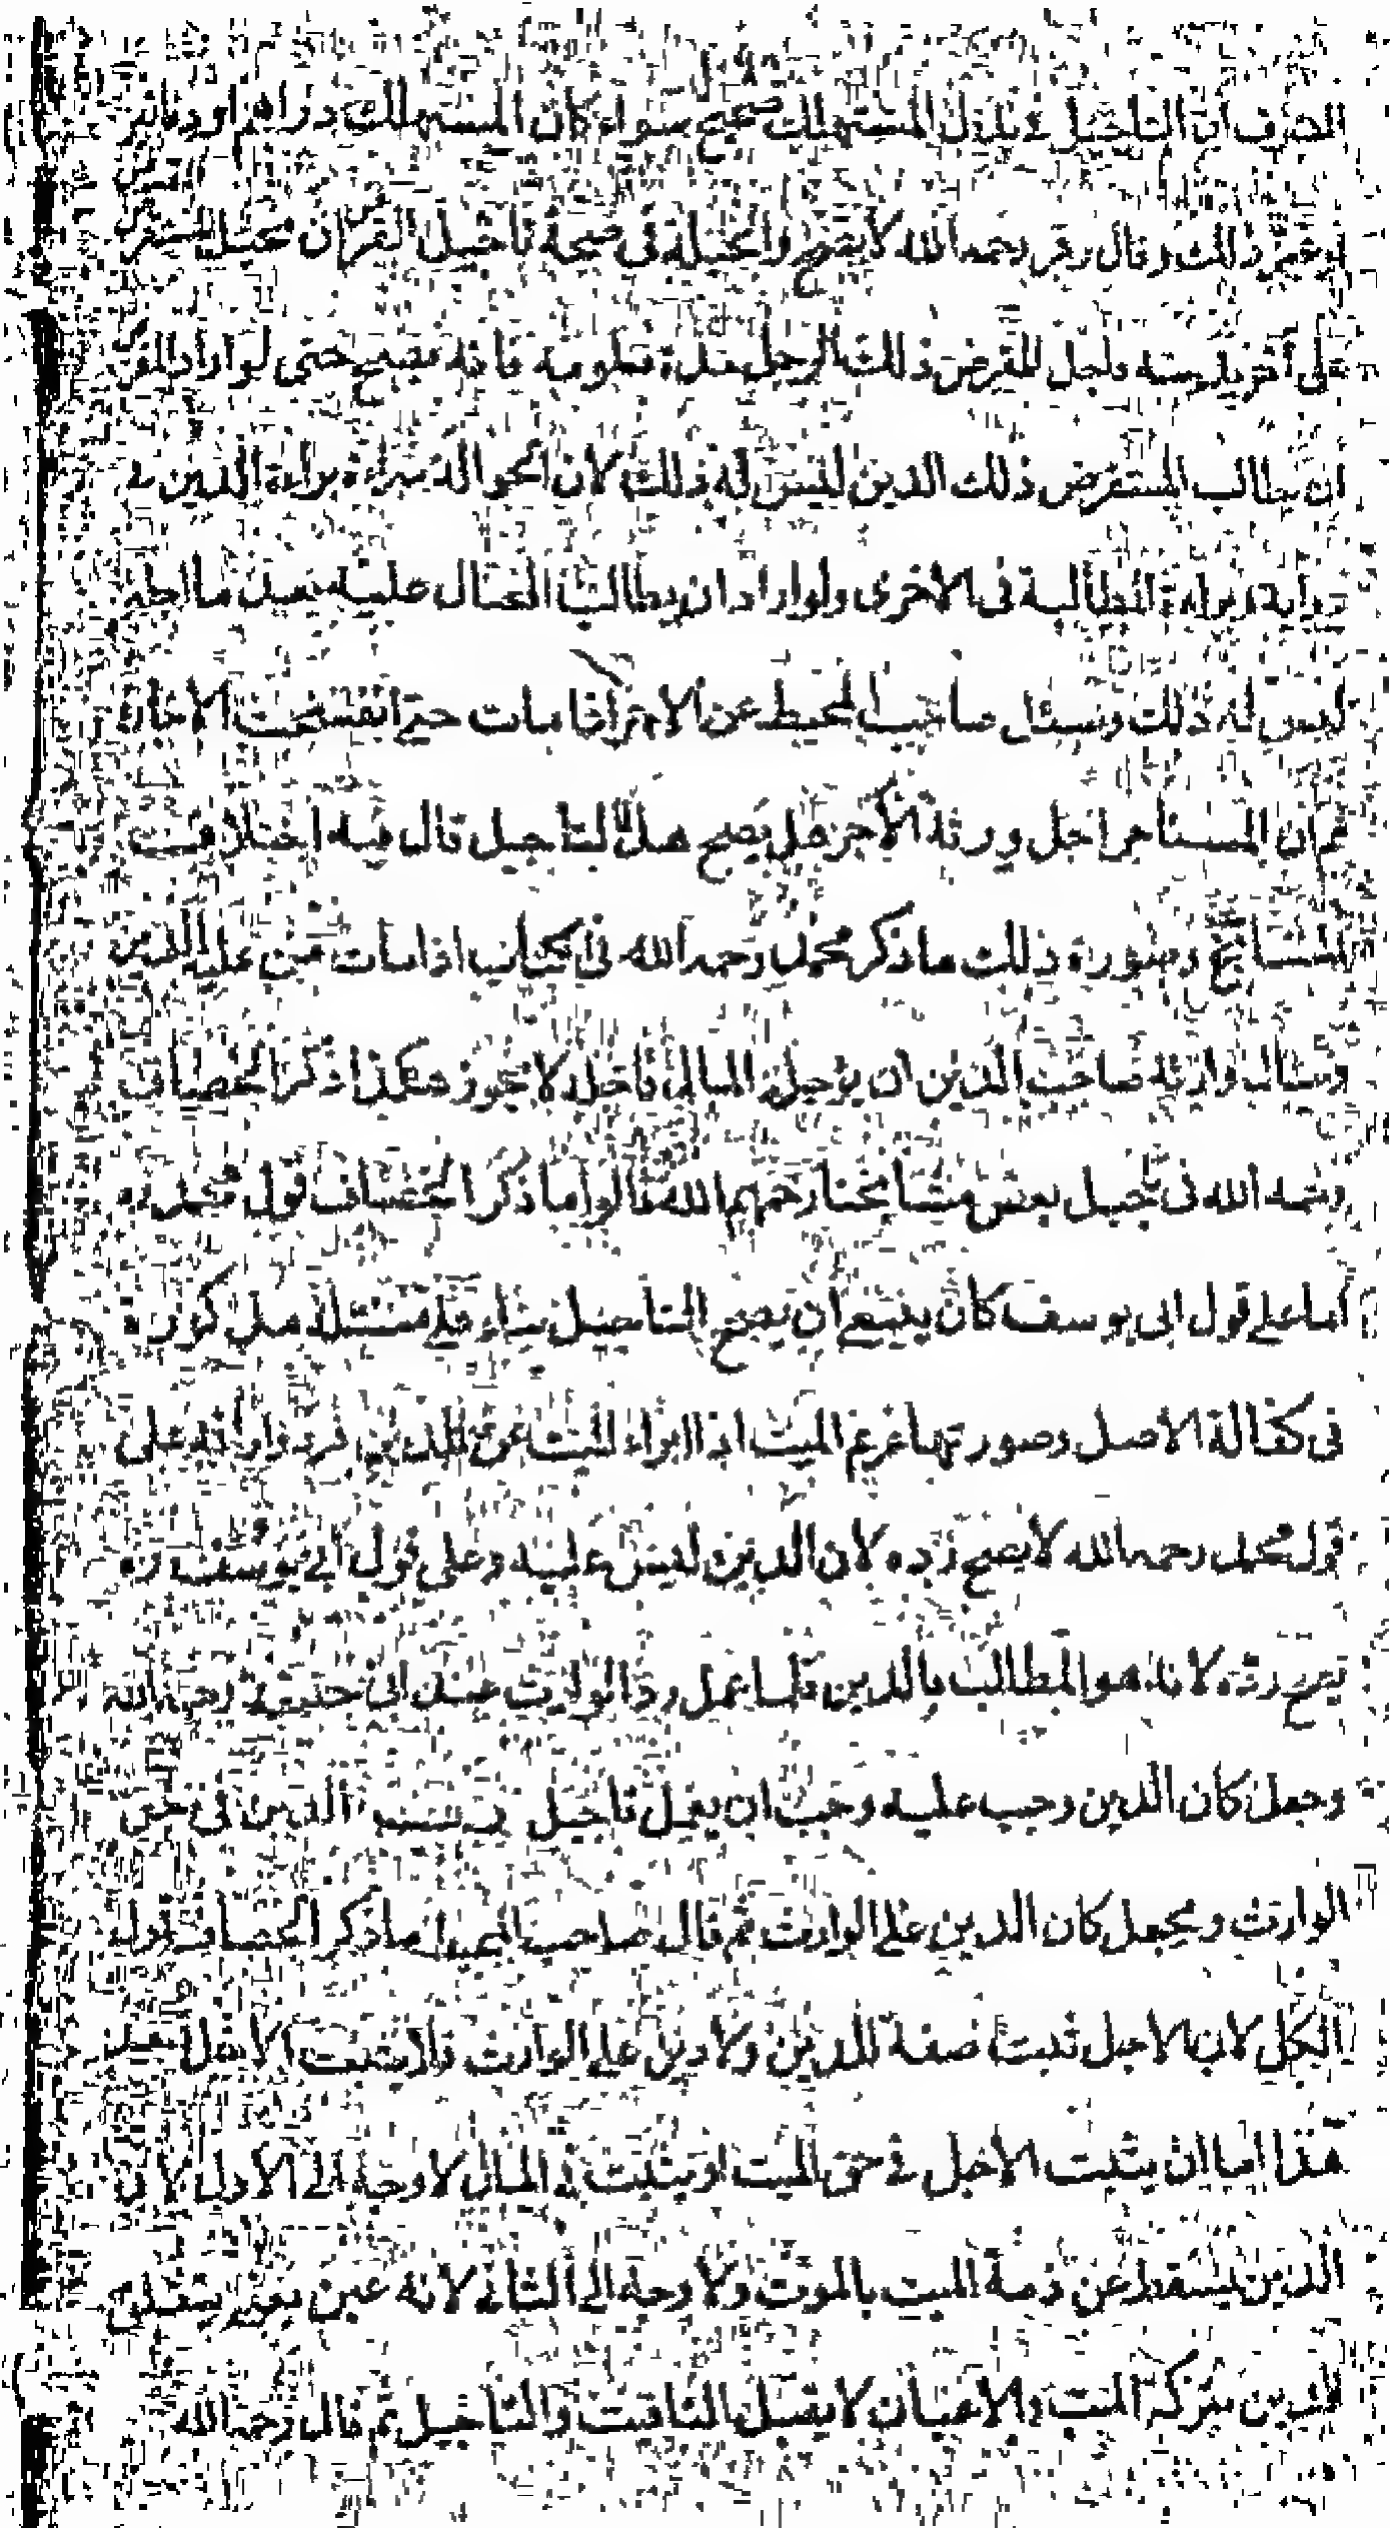 الصرف ان التاجيل في بدل المستهلك صحيح سواء كان المستهلك دراهم او دنانير
او غير ذلك وقال زفر رحمه الله لا يصح والحيلة في صحة تاجيل القرض ان يحيل المستقرض
على اخر بدينه ويوجل المقرض ذلك الرجل مدة معلومة فانه يصح حتى لو اراد المقرض
ان يطالب المستقرض ذلك الدين ليس له ذلك لان الحوالة مبراءة براءة الدين في
رواية وبراءة المطالبة في الاخرى ولو اراد ان يطالب المحتال عليه بعد ما اجله
ليس له ذلك وسئل صاحب المحيط عن الاجر اذا مات حتى انفسخت الاجارة
ثم ان المستاجر اجل ورثة الاجر هل يصح هذا التاجيل قال فيه اختلاف
المشايخ وصورة ذلك ما ذكر محمد رحمه الله في كتاب اذا مات من عليه الدين
وسال وارثه صاحب الدين ان يوجل المال فاجله لا يجوز هكذا ذكر الخصاف
رحمه الله في بعض مشايخنا رحمهم الله قالوا ما ذكر الخصاف قول محمد ره
اما على قول ابى يوسف كان ينبغي ان يصح التاجيل بناء على مسئلة مذكورة
في كفالة الاصل وصورتها غريم الميت اذا ابراء الميت عن الدين فرد وارثه على
قول محمد رحمه الله لا يصح رده لان الدين ليس عليه وعلى قول ابي يوسف ره
يصح رده لانه هو المطالب بالدين فلما عمل رد الوارث عند ابى حنيفة رحمه الله
وجعل كان الدين وجب عليه وجب ان يعمل تاجيل الدين في حق
الوارث ويجعل كان الدين على الوارث ثم قال صاحب المحيط ما ذكر الخصاف قول
الكل لان الاجل ثبت صفة للدين ولا دين على الوارث فلا يثبت الاجل
هذا اما ان يثبت الاجل في حق الميت او يثبت في المال لا وجه الى الاول لان
الدين يسقط عن ذمة الميت بالموت ولا وجه الى الثاني لانه عين
الدين بتركة الميت والاعيان لا يقبل التاقيت والتاجيل ثم قال رحمه الله